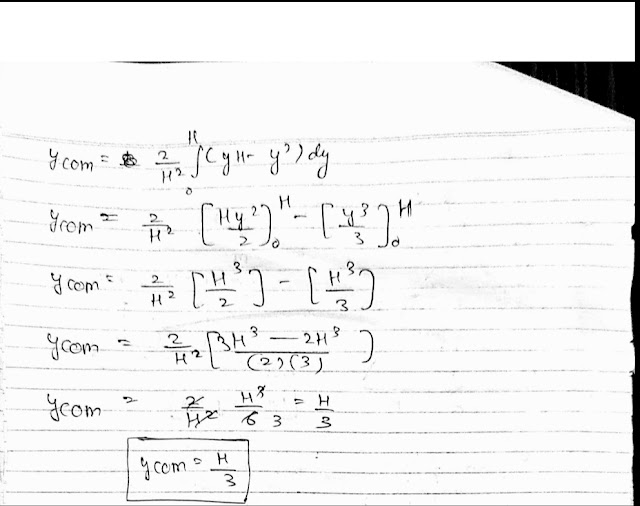 ycom = 2/H² ∫₀ᴴ (yH - y²) dy
ycom = 2/H² [Hy²/2]₀ᴴ - [y³/3]₀ᴴ
ycom = 2/H² [H³/2] - [H³/3]
ycom = 2/H² [3H³ - 2H³/(2)(3)]
ycom = 2/H² H³/6 3 = H/3
ycom = H/3